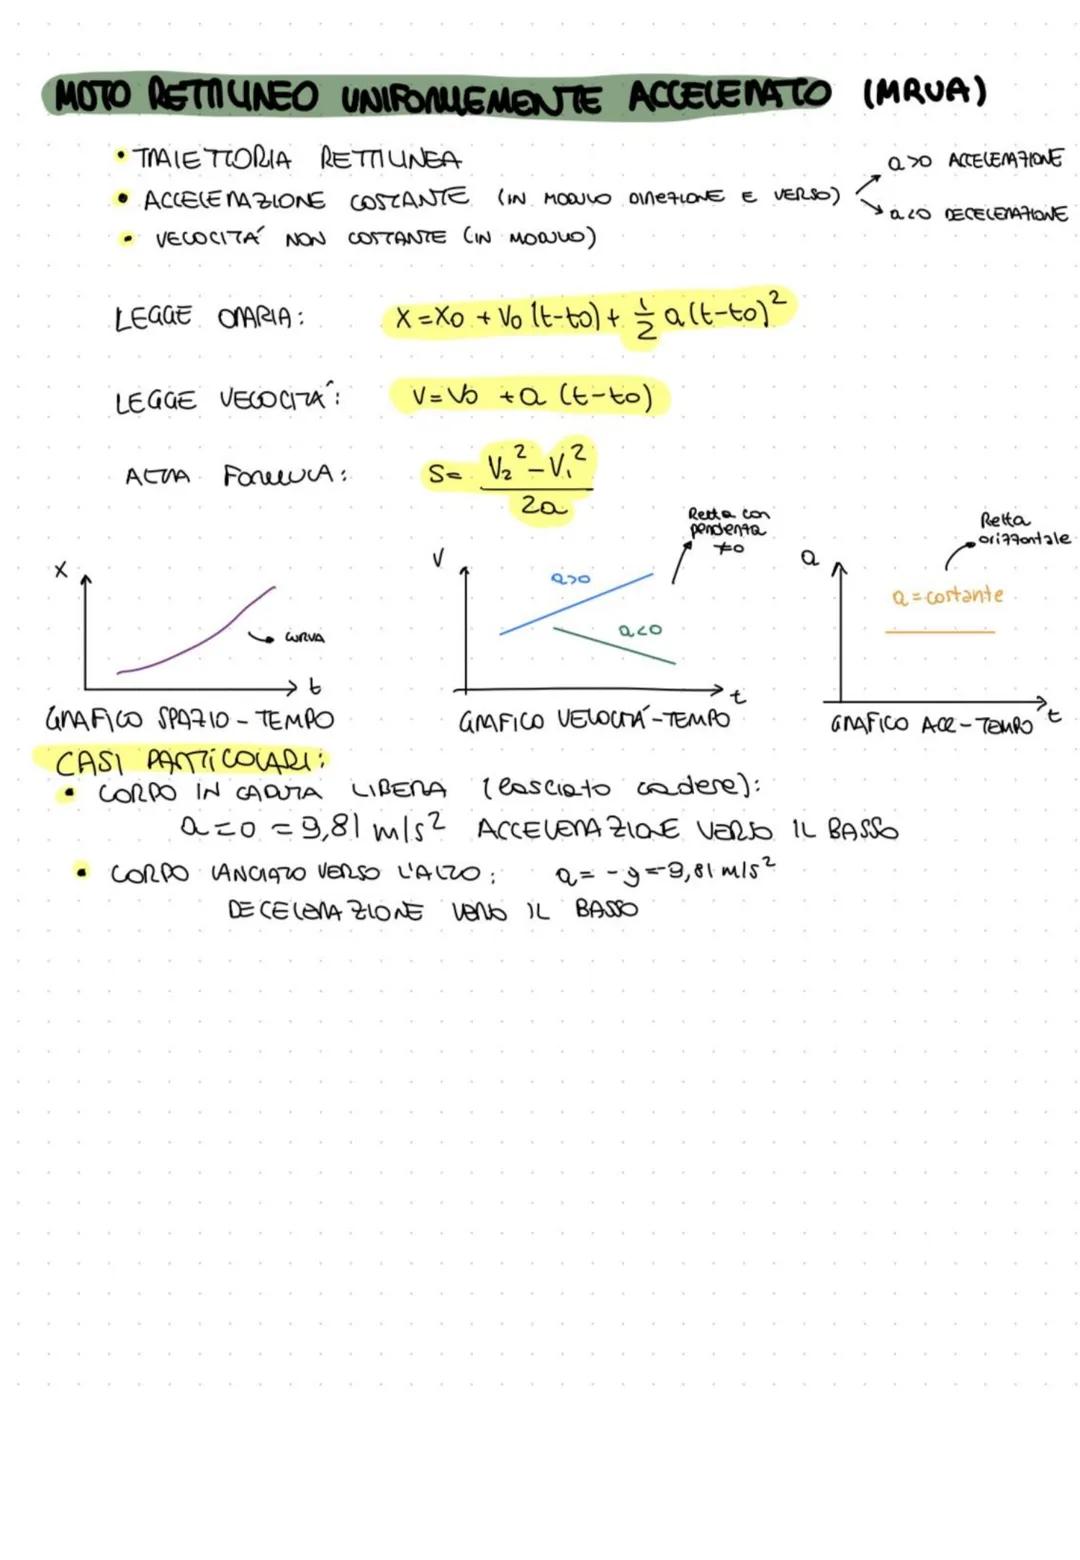 MOTO RETTILINEO UNIFORMEMENTE ACCELERATO (MRUA)
• TRAIETTORIA RETTILINEA
• ACCELERAZIONE COSTANTE (IN MODULO DIREZIONE E VERSO)
a>0 ACCELERAZIONE
a<0 DECELERAZIONE
• VELOCITÁ NON COSTANTE (IN MODULO)
LEGGE ORARIA: X=X0 + V0 (t-t0) + 1/2 a(t-t0)²
LEGGE VELOCITÁ: V=V0 +a (t-t0)
ALTRA FORMULA: S= V₂²-V₁² / 2a
Retta con
pendenza
≠0
Retta
orizzontale
x
CURVA
t
V
a>0
a<0
t
a
a=costante
t
GRAFICO SPAZIO - TEMPO
GRAFICO VELOCITÁ-TEMPO
GRAFICO ACC-TEMPO
CASI PARTICOLARI:
• CORPO IN CADUTA LIBERA (lasciato cadere):
a=0 =9,81 m/s² ACCELERAZIONE VERSO IL BASSO
• CORPO LANCIATO VERSO L'ALTO: a= -g=9,81 m/s²
DECELERAZIONE VERSO IL BASSO